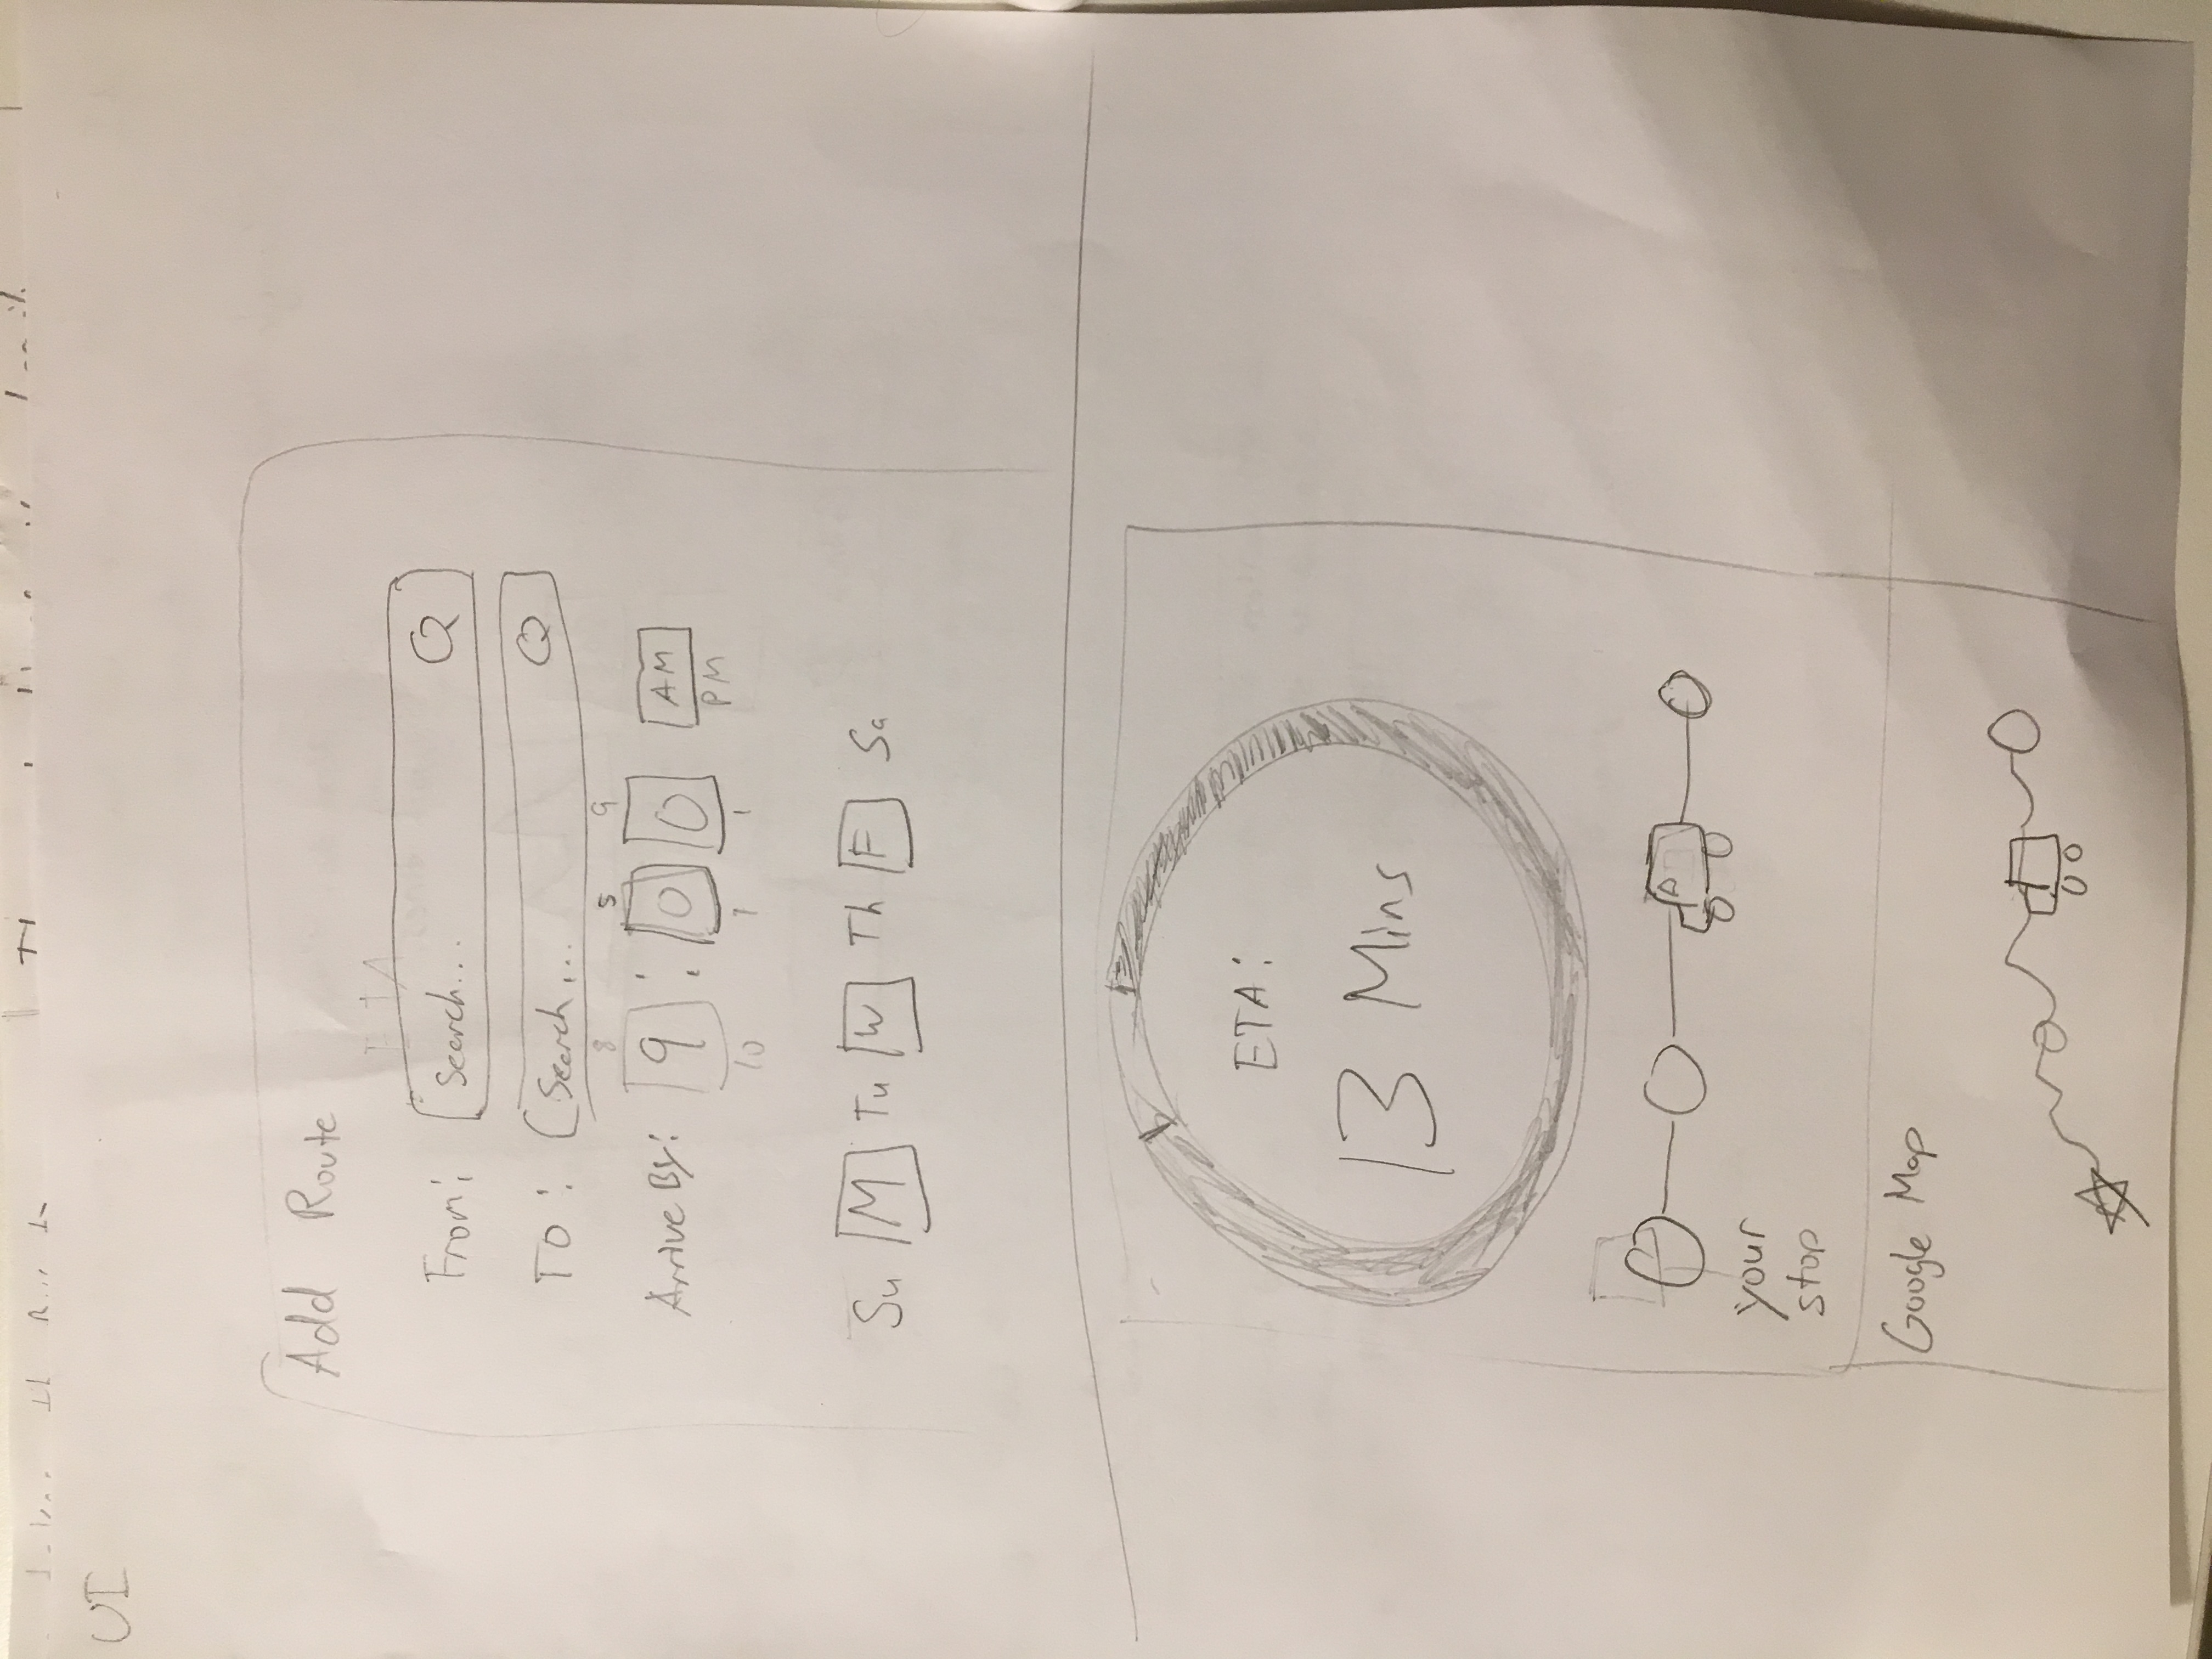 UI
Add Route
ETA
From: Search...
TO: Search...
8 5 9
Arrive By: 9 : 0 0 AM
PM
10 1 1
Su M Tu W Th F Sa
ETA:
13 Mins
your
stop
Google Map